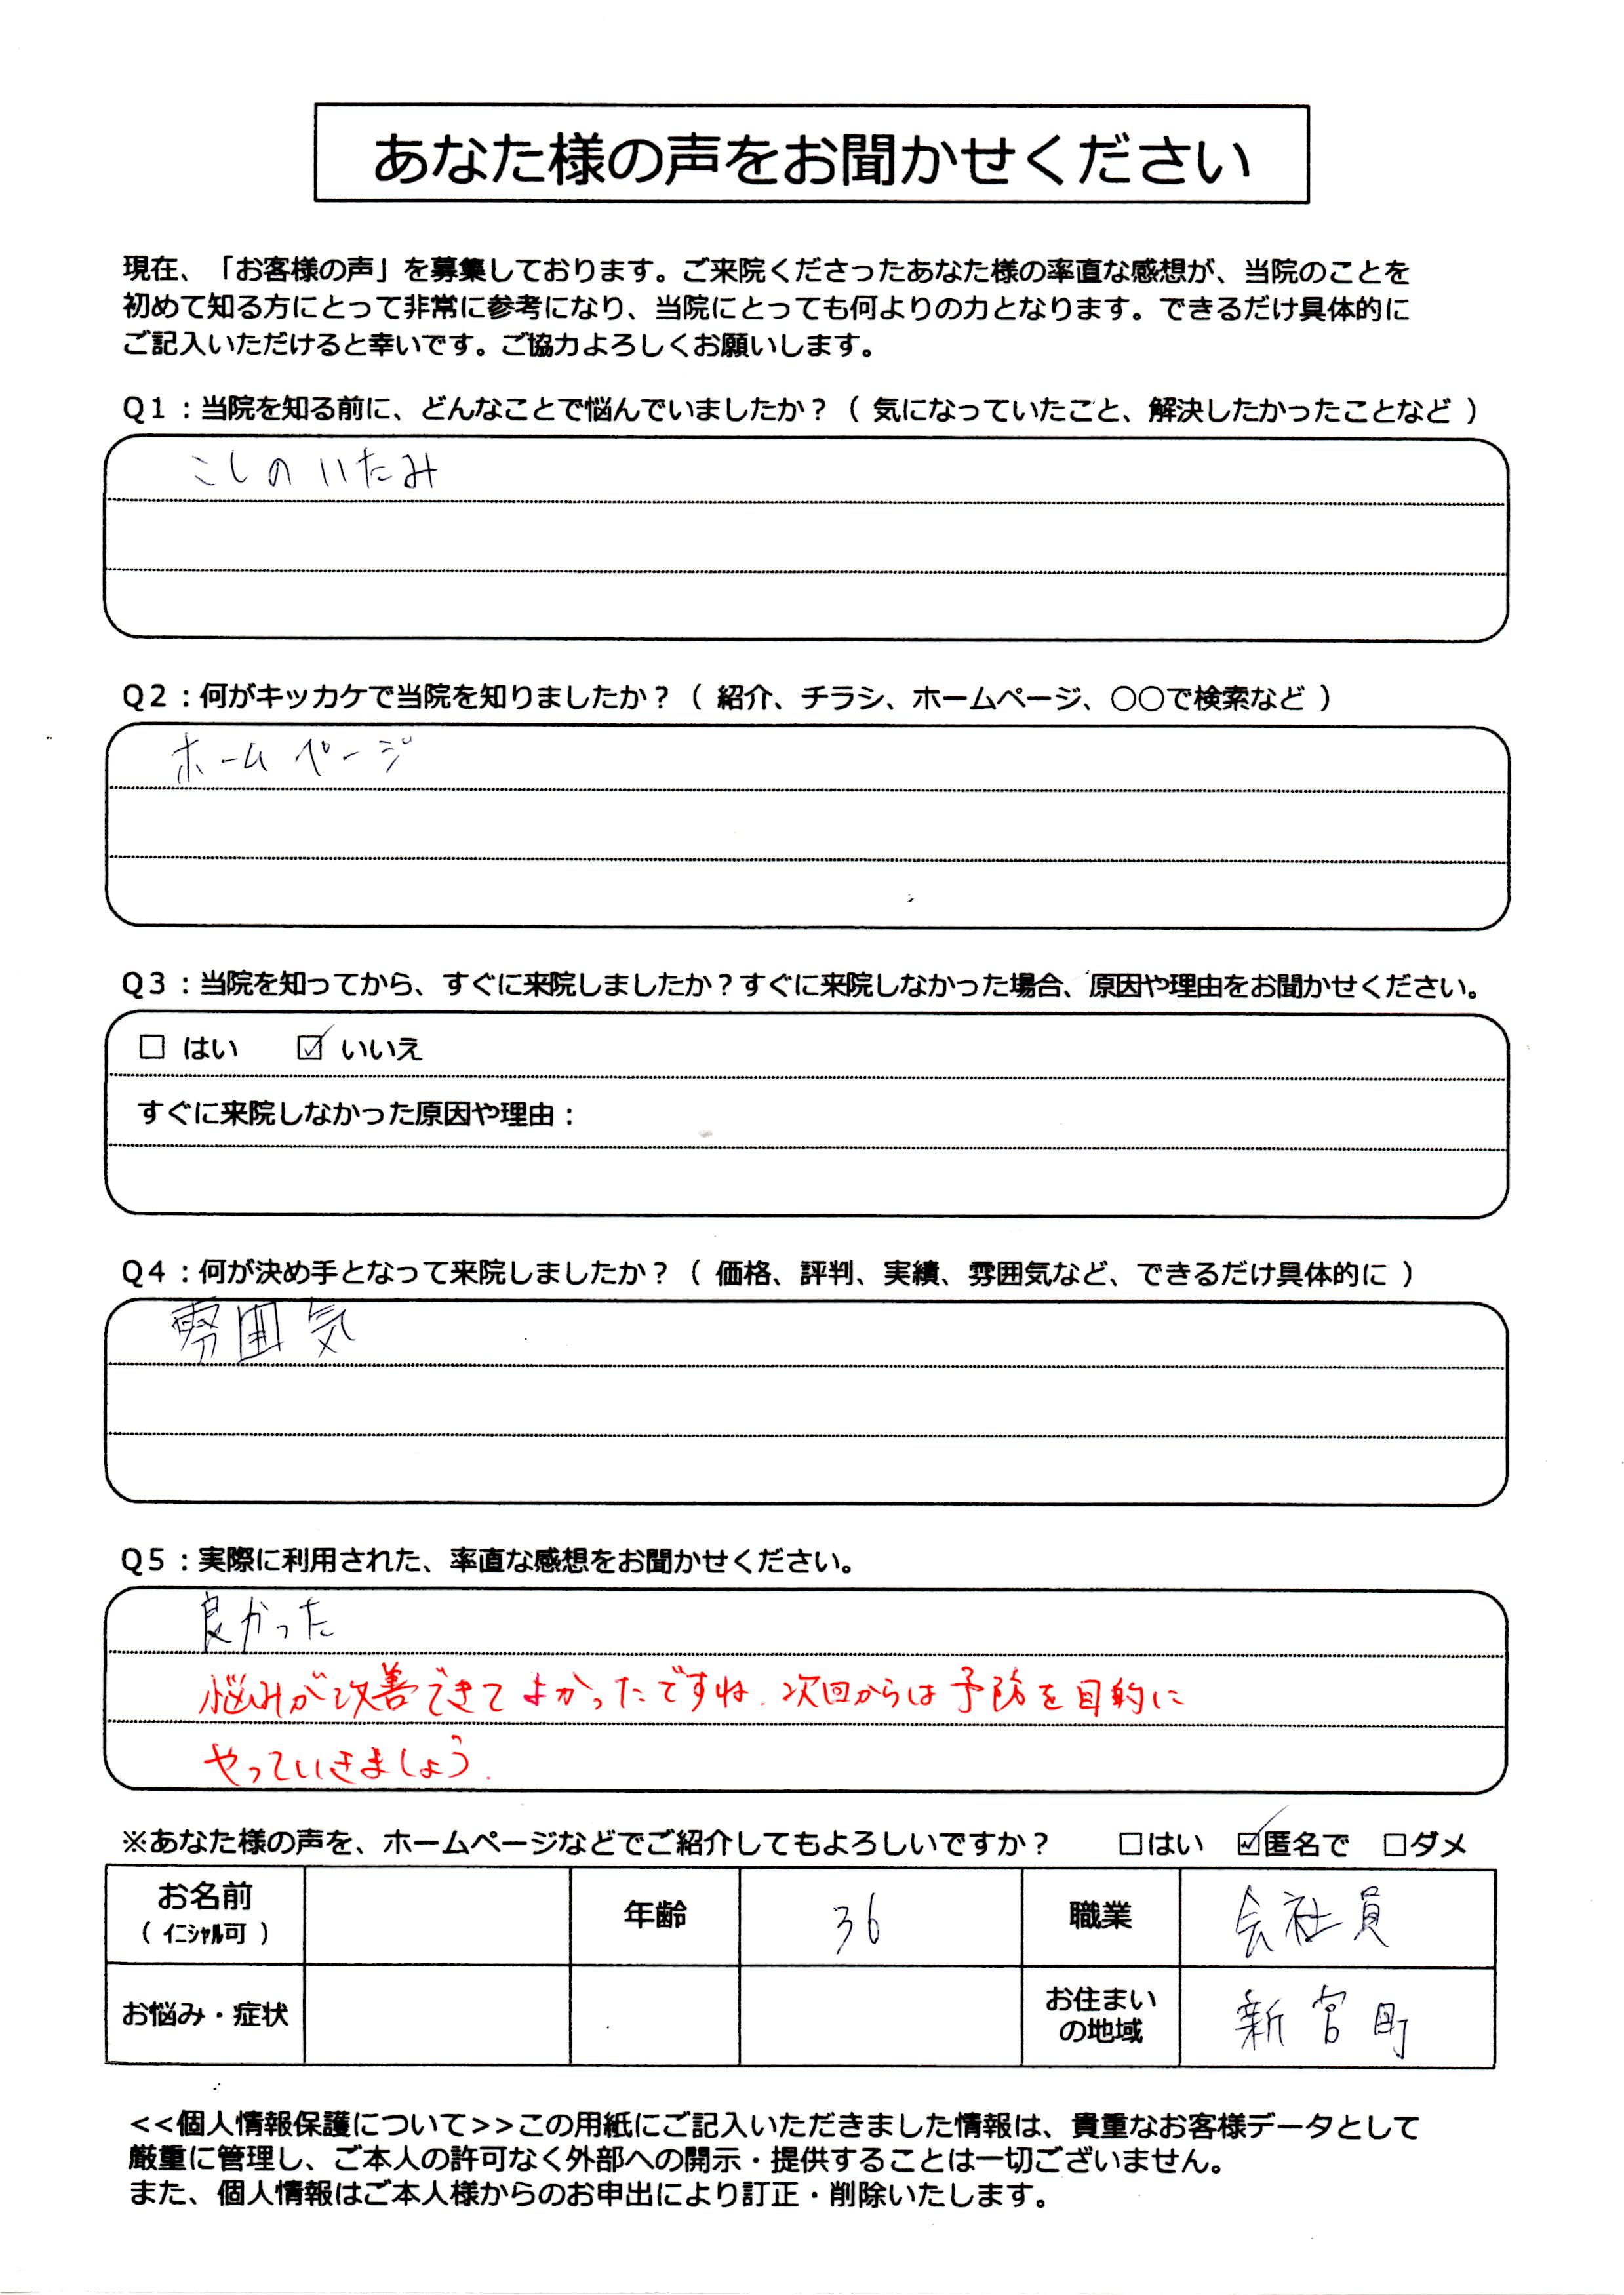 あなた様の声をお聞かせください
現在、「お客様の声」を募集しております。ご来院くださったあなた様の率直な感想が、当院のことを
初めて知る方にとって非常に参考になり、当院にとっても何よりの力となります。できるだけ具体的に
ご記入いただけると幸いです。ご協力よろしくお願いします。
Q1：当院を知る前に、どんなことで悩んでいましたか？（ 気になっていたこと、解決したかったことなど ）
こしのいたみ
Q2：何がキッカケで当院を知りましたか？（ 紹介、チラシ、ホームページ、○○で検索など ）
ホームページ
Q3：当院を知ってから、すぐに来院しましたか？すぐに来院しなかった場合、原因や理由をお聞かせください。
□ はい ☑ いいえ
すぐに来院しなかった原因や理由：
Q4：何が決め手となって来院しましたか？（ 価格、評判、実績、雰囲気など、できるだけ具体的に ）
雰囲気
Q5：実際に利用された、率直な感想をお聞かせください。
良かった
悩みが改善できてよかったですね。次回からは予防を目的に
やっていきましょう。
※あなた様の声を、ホームページなどでご紹介してもよろしいですか？ □はい ☑匿名で □ダメ
お名前 年齢 36 職業 会社員
（ ｲﾆｼｬﾙ可 ）
お悩み・症状 お住まい 新宮町
の地域
<<個人情報保護について>>この用紙にご記入いただきました情報は、貴重なお客様データとして
厳重に管理し、ご本人の許可なく外部への開示・提供することは一切ございません。
また、個人情報はご本人様からのお申出により訂正・削除いたします。